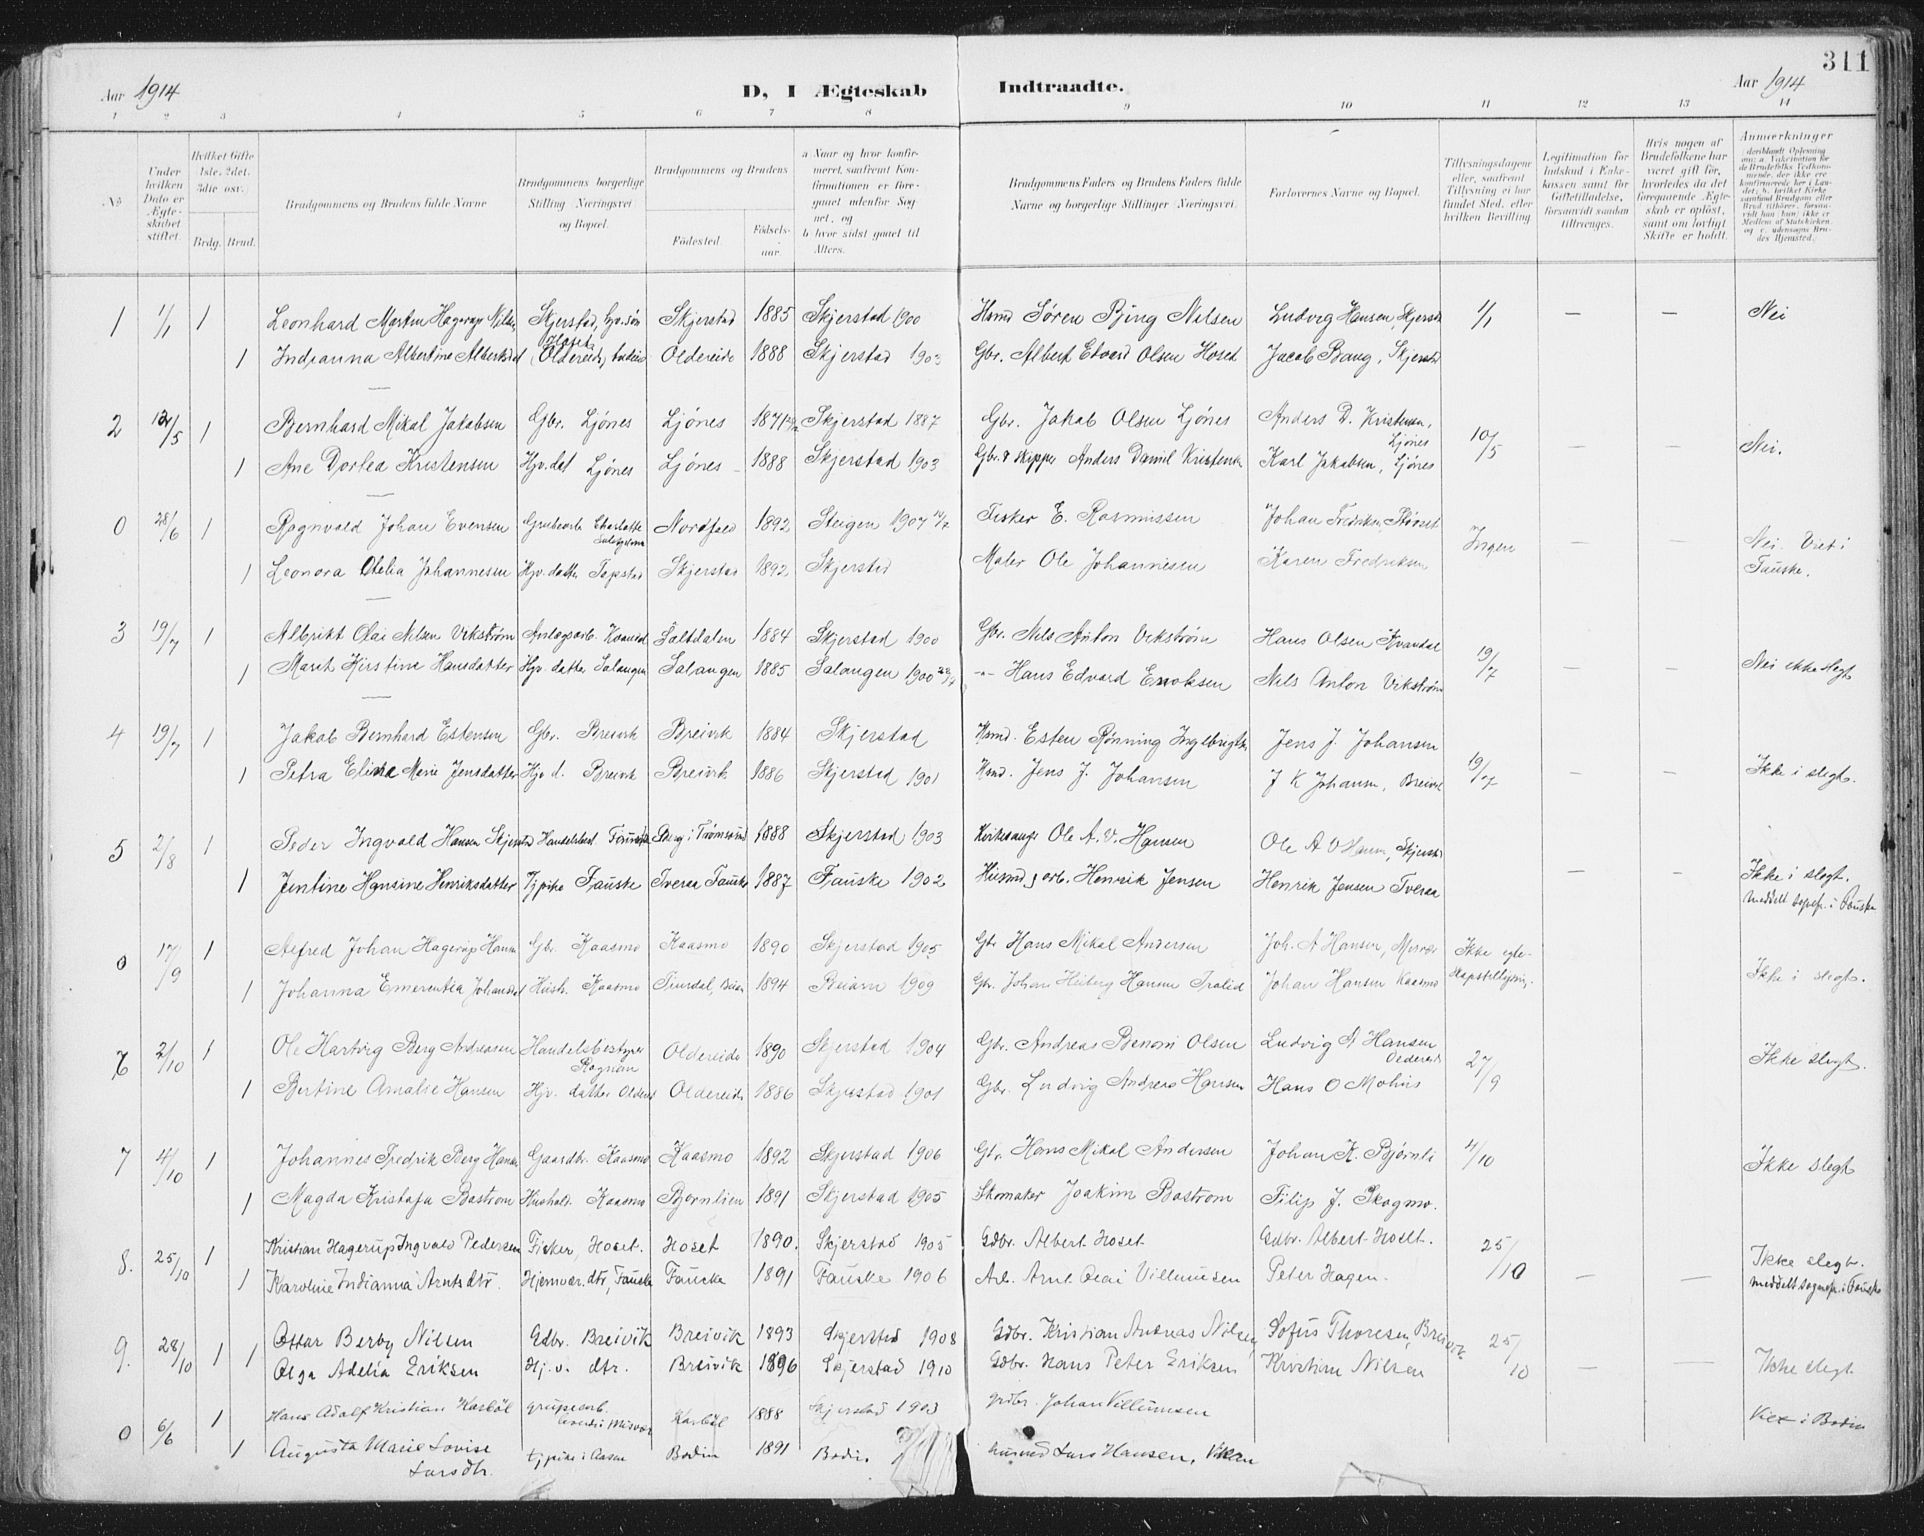 311
Aar 1914
D, I Ægteskab Indtraadte.
Aar 1914
1 2 3 4 5 6 7 8 9 10 11 12 13 14
No
Under hvilken Dato er Ægteskabet stiftet.
Hvilket Gifte 1ste, 2det, 3die osv.
Brdg. Brud.
Brudgommens og Brudens fulde Navne
Brudgommens borgerlige Stilling (Næringsvei) og Bopæl.
Brudgommens og Brudens
Fødested. Fødselsaar.
a Naar og hvor konfirmeret, saafremt Konfirmationen er foregaaet udenfor Sognet, og
b hvor sidst gaaet til Alters.
Brudgommens Faders og Brudens Faders fulde Navne og borgerlige Stillinger (Næringsvei).
Forlovernes Navne og Bopæl.
Tillysningsdagene eller, saafremt Tillysning ei har fundet Sted, efter hvilken Bevilling
Legitimation for Indskud i Enkekassen samt for Giftetilladelse, forsaavidt saadan tiltrænges.
Hvis nogen af Brudefolkene har været gift før, hvorledes da det foregaaende Ægteskab er opløst, samt om lovligt Skifte er holdt.
Anmærkninger
1 1/1 1 Leonhard Martin Hagerup Nilsen Skjerstad, Gv. søn Skjerstad 1885 Skjerstad 1900 Hsmd Søren Bjing Nilsen Ludvig Hansen, Skjerstd 1/1 — — Nei
1 Indianna Albertine Albertsdat Hoset Oldereide Oldereide 1888 Skjerstad 1903 Gbr. Albert Edvard Olsen Hoset Jacob Bang, Skjerstd
2 12/5 1 Bernhard Mikal Jakobsen Gbr. Ljönes Ljönes 1871 Skjerstad 1887 Gbr. Jakob Olsen Ljönes Anders D. Kristensen, Ljönes 10/5 — — Nei.
1 Ane Dorlea Kristensen Hjv. dat Ljönes Ljönes 1888 Skjerstad 1903 Gbr & Skipper Anders Daniel Kristensen Karl Jakobsen, Ljönes
0 28/6 1 Ragnvald Johan Evensen Grubearb Charlotta Sulitjelma Nordfold 1892 Steigen 1907 Fisker E. Rasmussen Johan Fredriksen, Ingen — — Nei. Viet i Fauske.
1 Leonora Otelia Johannesen Hjv. datter Topstad Skjerstad 1892 Skjerstad Maler Ole Johannesen Karen Fredriksen
3 19/7 1 Albrikt Olai Nilsen Vikström Anlægsarb. Saltdalen 1884 Skjerstad 1900 Gbr. Nils Anton Vikström Hans Olsen Kvandal 19/7 — — Nei ikke slegt
1 Maret Kirstine Hansdatter Hjv. datter Salangen Salangen 1885 Salangen 1900 -"- Hans Edvard Enoksen Nils Anton Vikström
4 19/7 1 Jakob Bernhard Estensen Gbr. Breivik Breivik 1884 Skjerstad Hsmd. Esten Rønning Ingebrigts Jens J. Johansen 19/7 — — Ikke i slegt.
1 Petra Elina Marie Jensdatter Hjv d. Breivik Breivik 1886 Skjerstad 1901 Hsmd. Jens J. Johansen J K Johansen, Breivik
5 2/8 1 Peder Ingvald Hansen Skjerstad Handelsbest Berg i Tromsøsund 1888 Skjerstad 1903 Kirkesanger Ole A. V. Hansen Ole A V Hansen, Skjerstd — — Ikke i slegt.
1 Jentine Hansine Henriksdatter Tjpike Fauske Tveraa Fauske 1887 Fauske 1902 Husmd, arb. Henrik Jensen Henrik Jensen Tveraa meddelt sogepr. i Fauske
0 17/9 1 Alfred Johan Hagerup Hansen Gbr. Kaasmo Kaasmo 1890 Skjerstad 1905 Gbr Hans Mikal Andersen Joh. A Hansen, Misvær Ikke egteskapstillysning. Ikke i slegt.
1 Johanna Emerentia Johansdat Hush. Kaasmo 1894 Beiarn 1909 Gbr. Johan Heiberg Hansen Johan Hansen Kaasmo
6 2/10 1 Ole Hartvig Berg Andreasen Handelsbestyrer Rognan Oldereide 1890 Skjerstad 1904 Gbr. Andreas Benoni Olsen Ludvig A Hansen 27/9 Ikke slegt.
1 Bertine Amalie Hansen Hjv. datter Oldereid Oldereide 1886 Skjerstad 1901 Gbr. Ludvig Andreas Hansen Hans O Mohus
7 4/10 1 Johannes Fredrik Berg Hansen Gaardbr. Kaasmo Kaasmo 1892 Skjerstad 1906 Gbr. Hans Mikal Andersen Johan K. Bjørnli 4/10 Ikke slegt
1 Magda Kristofa Bostrøm Hushold. Kaasmo Bjørnlien 1891 Skjerstad 1905 Skomaker Joakim Bostrøm Filip J. Skogmo.
8. 25/10 1 Kristian Hagerup Ingvald Pedersen Fisker, Hoset. Hoset 1890. Skjerstad 1905 Gdbr. Albert Hoset Gdbr. Albert Hoset. 25/10 — — Ikke slegt.
1 Karoline Indianna Arntsdtr. Hjemmevær. dtr, Fauske Fauske 1891 Fauske 1906 Arb. Arnt Olai Villumsen Peter Hagen. meddelt sognepr. i Fauske
9. 28/10 1 1 Ottar Berby Nilsen Gdbr. Breivik Breivik 1893 Skjerstad 1908 Gdbr. Kristian Andreas Nilsen Sofus Thoresen, Breivik 25/10 — — Ikke slegt
Olga Adelia Eriksen Hj.v. dtr. Breivik 1896 Skjerstad 1910 Gdbr. Hans Peter Eriksen Kristian Nilsen
0 6/6 1 Hans Adolf Kristian Karbøl grubearb. Karbøl 1888 Skjerstad 1903 grdbr. Johan Villumsen Viet i Bodin
1 Augusta Marie Lovise Larsdtr. tjpike i Aasen Bodin 1891 Bodin husmd Lars Hansen,